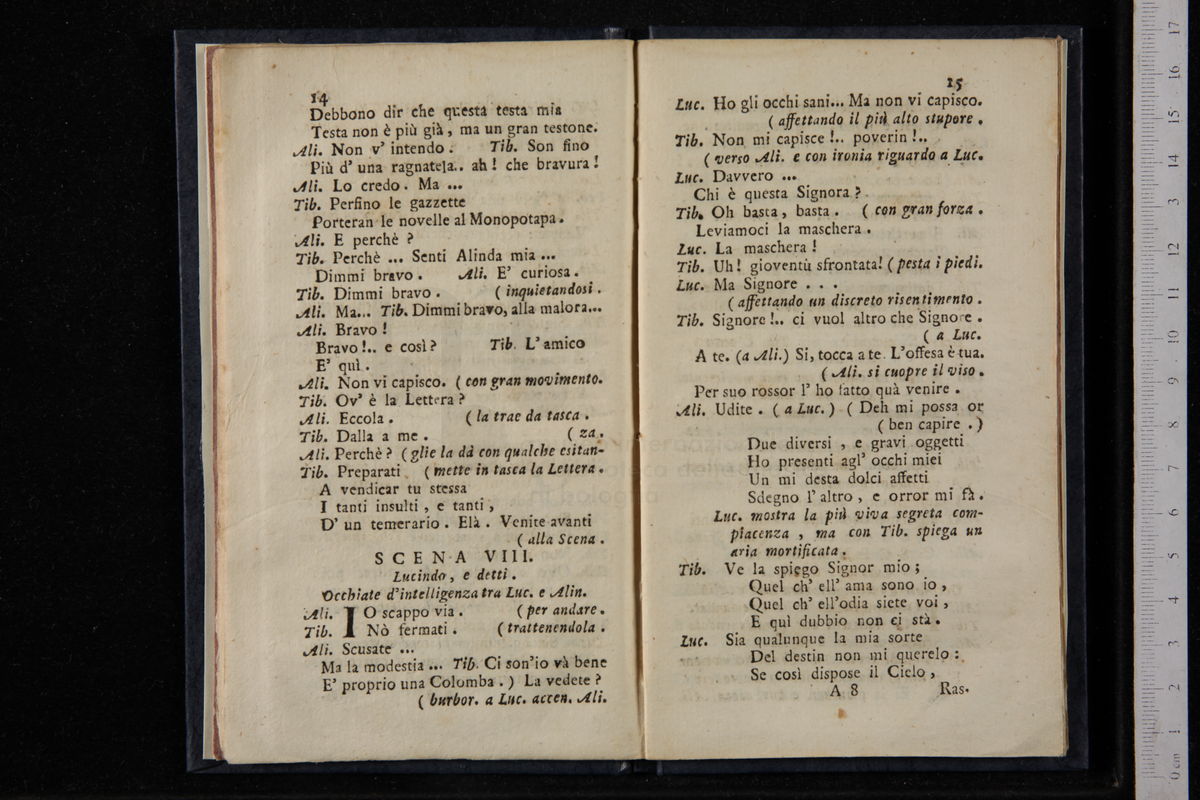 14
Debbono dir che questa testa mia
Testa non è più già, ma un gran testone.
Ali. Non v' intendo. Tib. Son fino
Più d' una ragnatela.. ah! che bravura!
Ali. Lo credo. Ma ...
Tib. Perfino le gazzette
Porteran le novelle al Monopotapa.
Ali. E perchè?
Tib. Perchè ... Senti Alinda mia ...
Dimmi bravo. Ali. E' curiosa.
Tib. Dimmi bravo. (inquietandosi.
Ali. Ma... Tib. Dimmi bravo, alla malora...
Ali. Bravo!
Bravo!.. e così? Tib. L' amico
E' quì.
Ali. Non vi capisco. (con gran movimento.
Tib. Ov' è la Lettera?
Ali. Eccola. (la trae da tasca.
Tib. Dalla a me. (za.
Ali. Perchè? (glie la dà con qualche esitan-
Tib. Preparati. (mette in tasca la Lettera.
A vendicar tu stessa
I tanti insulti, e tanti,
D' un temerario. Elà. Venite avanti
(alla Scena.
SCENA VIII.
Lucindo, e detti.
Occhiate d'intelligenza tra Luc. e Alin.
Ali. IO scappo via. (per andare.
Tib. Nò fermati. (trattenendola.
Ali. Scusate ...
Ma la modestia ... Tib. Ci son'io và bene
E' proprio una Colomba.) La vedete?
(burbor. a Luc. accen. Ali.
15
Luc. Ho gli occhi sani... Ma non vi capisco.
(affettando il più alto stupore.
Tib. Non mi capisce!.. poverin!..
(verso Ali. e con ironia riguardo a Luc.
Luc. Davvero ...
Chi è questa Signora?
Tib. Oh basta, basta. (con gran forza.
Leviamoci la maschera.
Luc. La maschera!
Tib. Uh! gioventù sfrontata! (pesta i piedi.
Luc. Ma Signore . . .
(affettando un discreto risentimento.
Tib. Signore!.. ci vuol altro che Signore.
(a Luc.
A te. (a Ali.) Si, tocca a te. L'offesa è tua.
(Ali. si cuopre il viso.
Per suo rossor l' ho fatto quà venire.
Ali. Udite. (a Luc.) (Deh mi possa or
(ben capire.)
Due diversi, e gravi oggetti
Ho presenti agl' occhi miei
Un mi desta dolci affetti
Sdegno l' altro, e orror mi fà.
Luc. mostra la più viva segreta com-
piacenza, ma con Tib. spiega un
aria mortificata.
Tib. Ve la spiego Signor mio;
Quel ch' ell' ama sono io,
Quel ch' ell'odia siete voi,
E quì dubbio non ci stà.
Luc. Sia qualunque la mia sorte
Del destin non mi querelo:
Se così dispose il Cielo,
A 8 Ras-